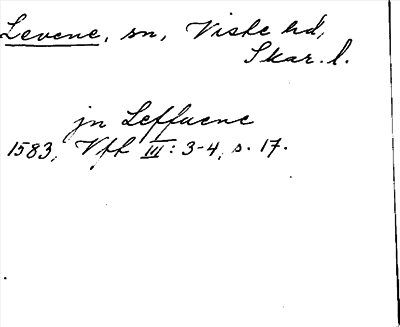 Levene, sn, Viste hd,
Skar. l.
jn Leffuene
1583, Vfft III: 3-4, s. 17.